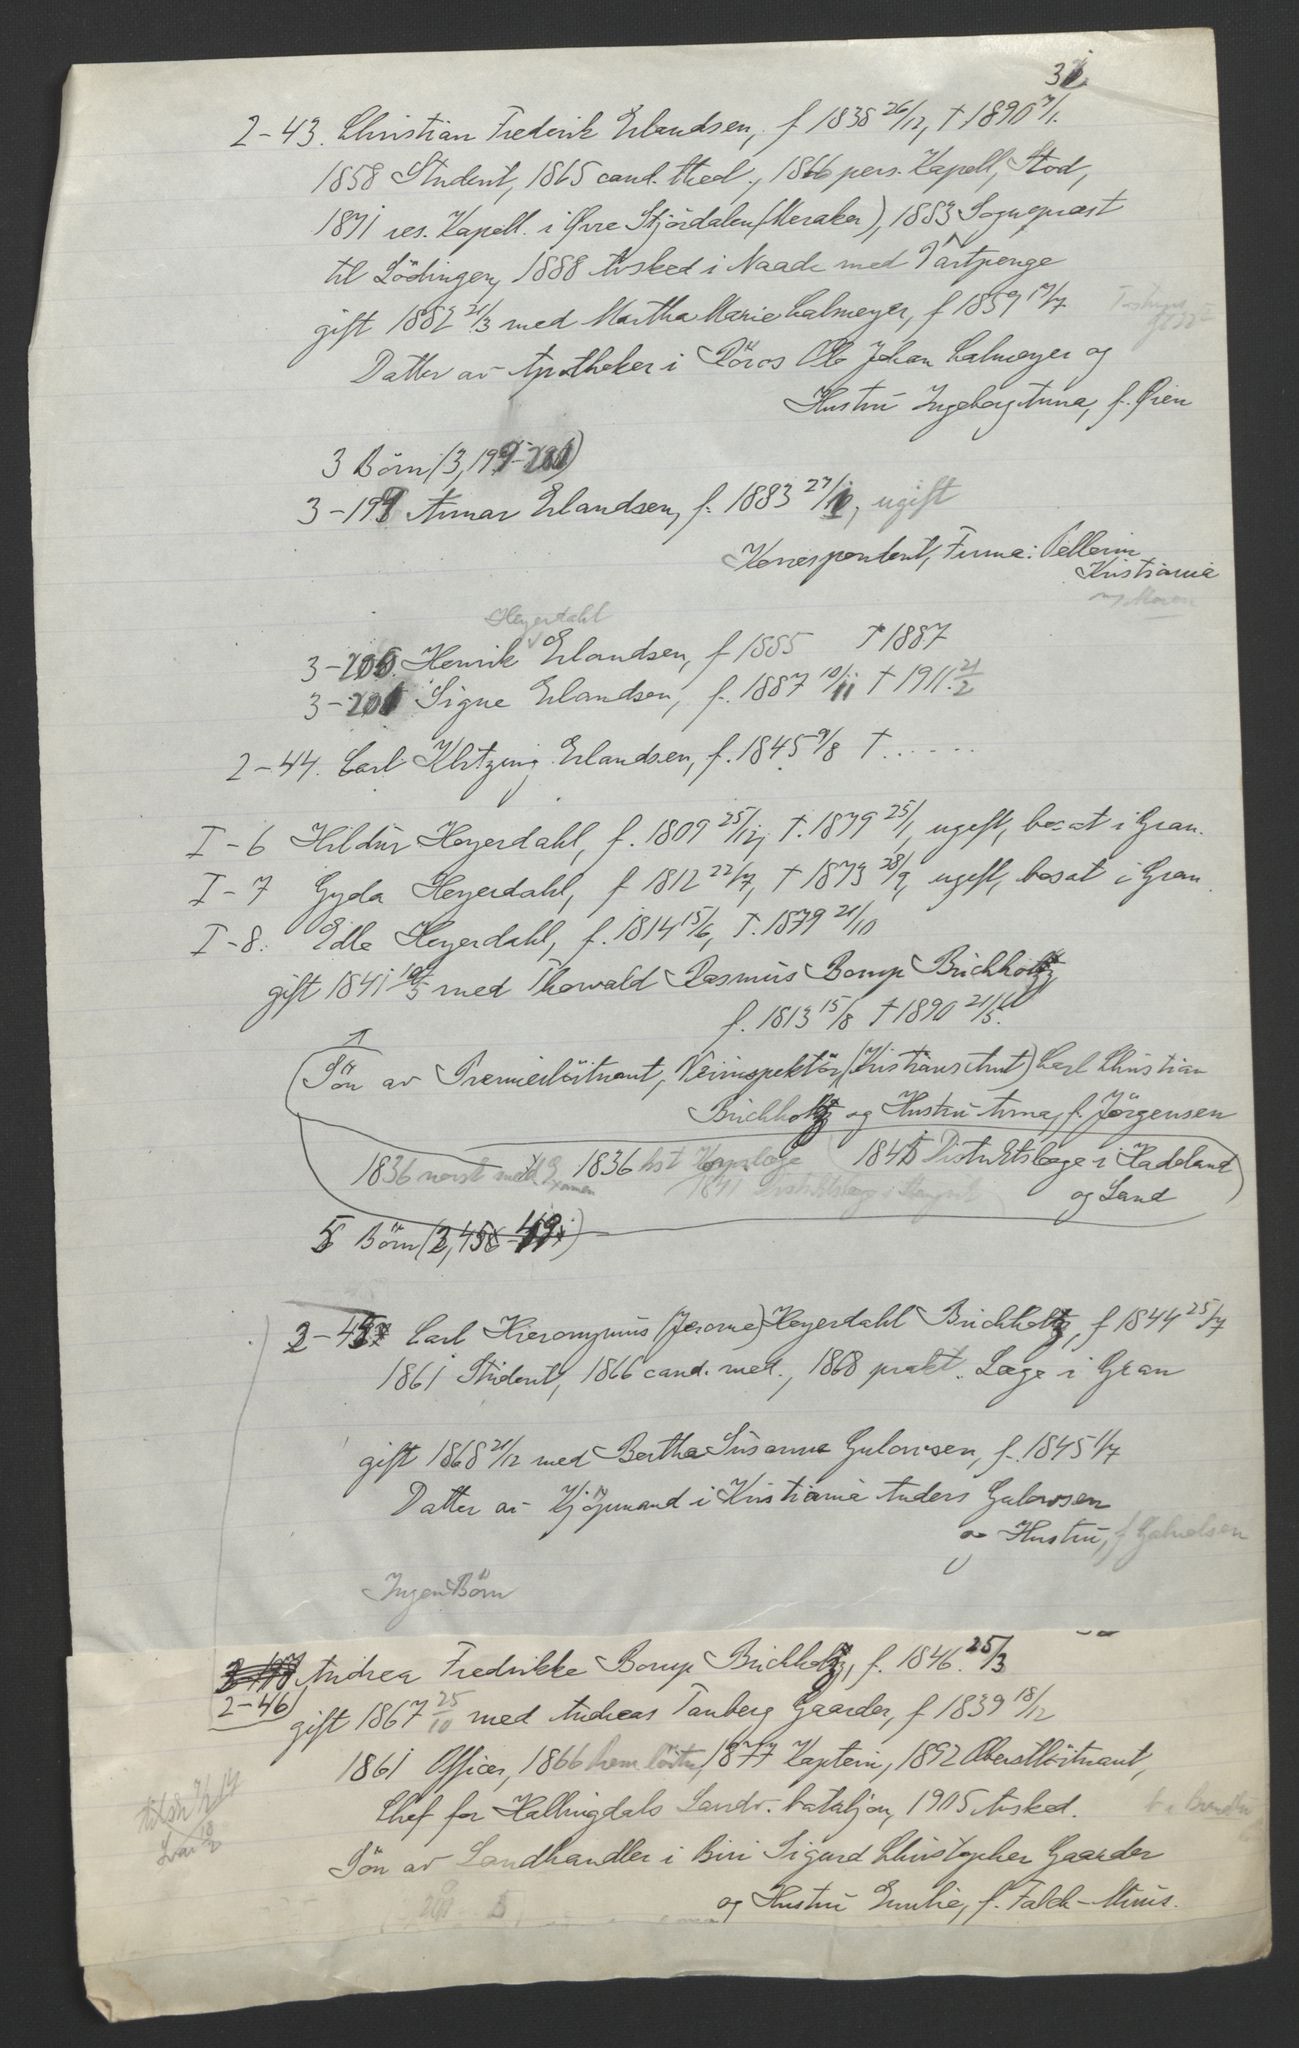 2-43. Christian Frederik Erlandsen, f 1838 26/12, † 1890 7/1.
1858 Student, 1865 cand. theol., 1866 pers. Kapell, Stod,
1871 res. Kapell. i Øvre Stjördalen (Meraker), 1883 Sognepræst
til Lödingen, 1888 Avsked i Naade med Vartpenge
gift 1882 21/3 med Martha Marie Lalmeyer, f 1859 17/7
Datter av Apotheker i Röros Ole Johan Lalmeyer og
Hustru Ingeborg Anna, f. Øien
3 Börn (3, 199-201)
3-199 Annar Erlandsen, f. 1883 27/10, ugift
Korrespondent, Firma: Pellerin
Kristiania
Heyerdahl
3-200. Henrik Erlandsen, f 1885 † 1887
3-201 Signe Erlandsen, f. 1887 10/11 † 1911. 21/2
2-44. Carl Klitzing Erlandsen, f. 1845 9/8 † . . . . . .
I-6 Hildur Heyerdahl, f. 1809 25/12, †. 1879 25/1, ugift, bosat i Gran.
I-7 Gyda Heyerdahl, f 1812 22/7, † 1873 28/9, ugift, bosat i Gran.
I-8. Edle Heyerdahl, f. 1814 15/6, †. 1879 21/10
gift 1841 10/5 med Thorvald Rasmus Borup Buchholtz
f. 1813 15/8 † 1890 21/5.
Sön av Premierlöitnant, Veiinspektör (Kristians Amt) Carl Christian
Buchholtz og Hustru Anna, f. Jörgensen
1836 norsk med. Examen 1836 kst Korpslæge 1845 Distriktslæge i Hadeland
1841 Distriktslæge i
og Land
5 Börn (2, 45-49)
2-45 Carl Hieronymus (Jerome) Heyerdahl Buchholtz, f 1844 25/7
1861 Student, 1866 cand. med., 1868 prakt. Læge i Gran
gift 1868 21/12 med Bertha Susanna Gulowsen, f. 1845 1/7
Datter av Kjöpmand i Kristiania Anders Gulowsen
og Hustru, f Gabrielsen
Ingen Börn
Andrea Fredrikke Borup Buchholtz, f. 1846. 25/3
2-46
gift 1867 25/10 med Andreas Tanberg Gaarder, f 1839 18/12
1861 Officer, 1866 Prem löitn, 1877 Kaptein, 1892 Oberstlöitnant,
Chef for Hallingdals Landv. bataljon, 1905 Avsked.
Sön av Landhandler i Biri Sigurd Christopher Gaarder
og Hustru Emilie, f. Falck-Muus.